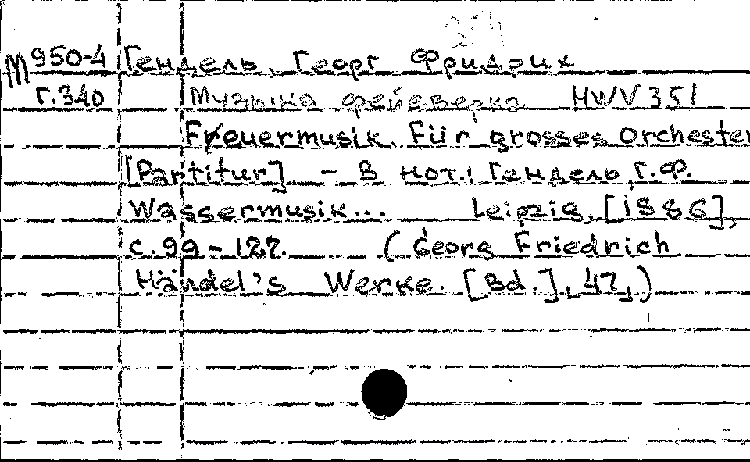 М 950-4 Гендель, Георг Фридрих
Г.340 Музыка фейерверка HWV 351
Feuermusik. Für grosses Orchester
[Partitur] – В нот.: Гендель, Г.Ф.
Wassermusik... Leipzig, [1886],
с. 99 – 127. (Georg Friedrich
Händel's Werke. [Bd.], 47,)